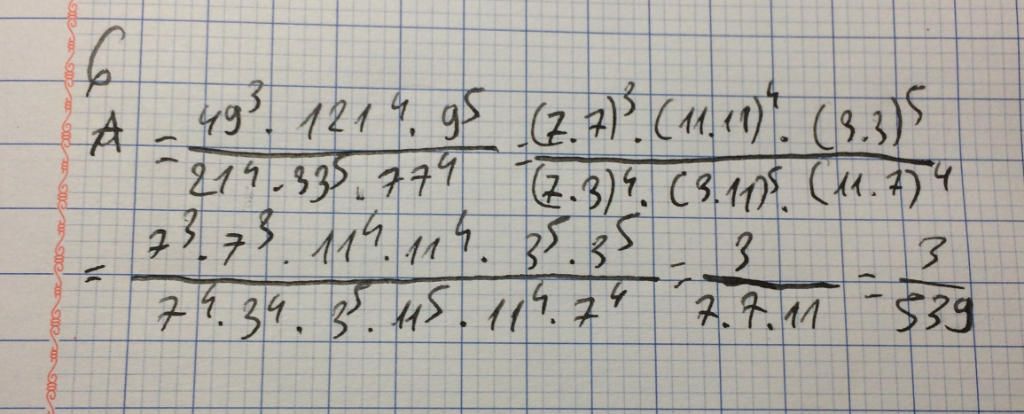 6
A = \frac{49^3 \cdot 121^4 \cdot 9^5}{21^4 \cdot 33^5 \cdot 77^4} = \frac{(7 \cdot 7)^3 \cdot (11 \cdot 11)^4 \cdot (3 \cdot 3)^5}{(7 \cdot 3)^4 \cdot (3 \cdot 11)^5 \cdot (11 \cdot 7)^4}
= \frac{7^3 \cdot 7^3 \cdot 11^4 \cdot 11^4 \cdot 3^5 \cdot 3^5}{7^4 \cdot 3^4 \cdot 3^5 \cdot 11^5 \cdot 11^4 \cdot 7^4} = \frac{3}{7 \cdot 7 \cdot 11} = \frac{3}{539}